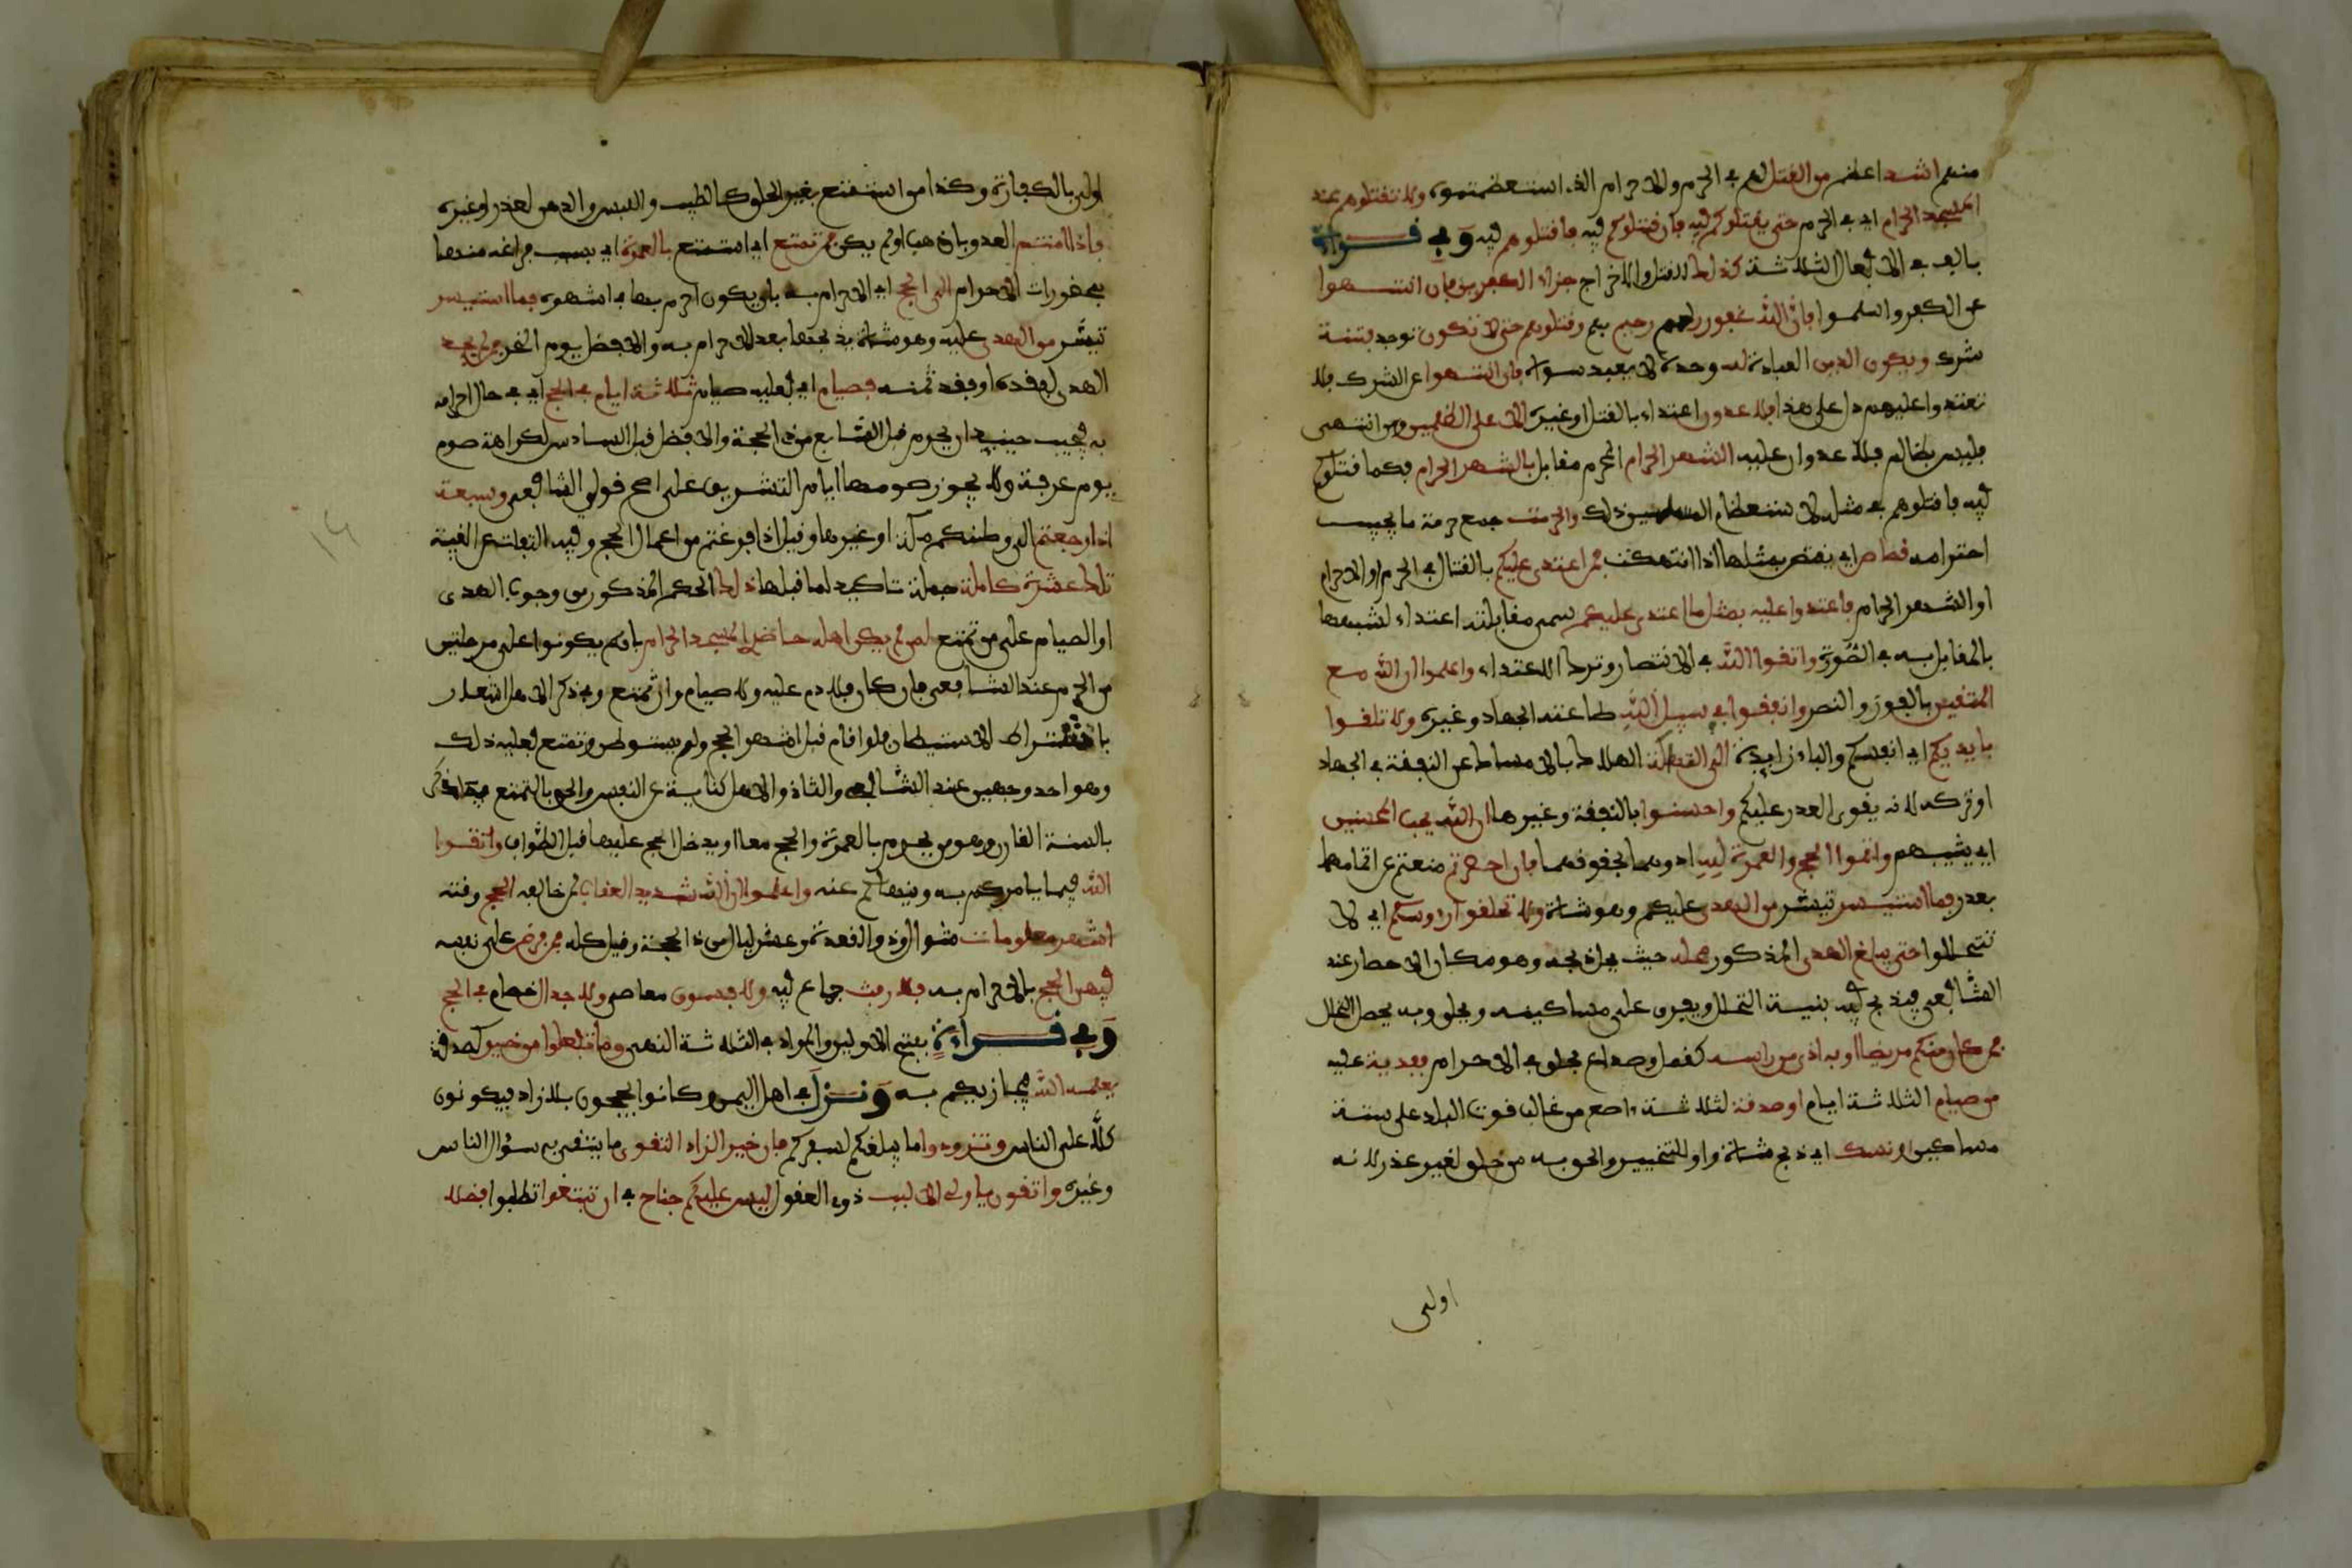 منهم اشد اعظم من القتل لهم في الحرم والاحرام الذي استعظمتموه ولا تقتلوهم عند
المسجد الحرام اي في الحرم حتى يقتلوكم فيه فان قتلوكم فيه فاقتلوهم فيه وفي قراءة
بالف في الافعال الثلاثة كذلك القتل والاخراج جزاء الكفرين فان انتهوا
عن الكفر واسلموا فان الله غفور لهم رحيم بهم وقتلوهم حتى لا تكون توجد فتنة
شرك ويكون الدين العبادة لله وحده لا يعبد سواه فان انتهوا عن الشرك فلا
تعتدوا عليهم دل على هذا فلا عدون اعتداء بالقتل او غيره الا على الظلمين ومن انتهى
فليس بظالم فلا عدوان عليه الشهر الحرام المحرم مقابل بالشهر الحرام فكما قتلوكم
فيه فاقتلوهم في مثله لاستعظام المسلمين ذلك والحرمت جمع حرمة ما يجب
احترامه قصاص اي يقتص بمثلها اذا انتهكت فمن اعتدى عليكم بالقتال في الحرم او الاحرام
او الشهر الحرام فاعتدوا عليه بمثل ما اعتدى عليكم سمى مقابلته اعتداء لشبهها
بالمقابل به في الصورة واتقوا الله في الانتصار وترك الاعتداء واعلموا ان الله مع
المتقين بالعون والنصر وانفقوا في سبيل الله طاعته الجهاد وغيره ولا تلقوا
بايديكم اي انفسكم والباء زايدة الى التهلكة الهلاك بالامساك عن النفقة في الجهاد
او تركه لانه يقوى العدو عليكم واحسنوا بالنفقة وغيرها ان الله يحب المحسنين
اي يثيبهم واتموا الحج والعمرة لله ادوهما بحقوقهما فان احصرتم منعتم عن اتمامهما
بعدو فما استيسر تيسر من الهدى عليكم وهو شاة ولا تحلقوا رءوسكم اي لا
تتحللوا حتى يبلغ الهدى المذكور محله حيث يحل ذبحه وهو مكان الاحصار عند
الشافعى فيذبح فيه بنية التحلل ويفرق على مساكينه ويحلق وبه يحصل التحلل
فمن كان منكم مريضا او به اذى من راسه كقمل وصداع فحلق في الاحرام ففدية عليه
من صيام الثلاثة ايام او صدقة لثلاثة اصع من غالب قوت البلد على ستة
مساكين او نسك اي ذبح شاة واو للتخيير والحق به من حلق لغير عذر لانه
اولى
اولى بالكفارة وكذا من استمتع بغير الحلق كالطيب واللبس والدهن لعذر او غيره
فاذا امنتم العدو بان ذهب او لم يكن فمن تمتع اي استمتع بالعمرة اي بسبب فراغه منها
بمحظورات الاحرام الى الحج اي الاحرام به بان يكون احرم بها في اشهره فما استيسر
تيسر من الهدى عليه وهو شاة يذبحها بعد الاحرام به والافضل يوم النحر فمن لم يجد
الهدى لفقده او فقد ثمنه فصيام اي فعليه صيام ثلاثة ايام في الحج اي في حال احرامه
به فيجب حينيذ ان يحرم قبل السابع من ذي الحجة والافضل قبل السادس لكراهة صوم
يوم عرفة ولا يجوز صومها ايام التشريق على اصح قولي الشافعى وسبعة
اذا رجعتم الى وطنكم مكة او غيرها وقيل اذا فرغتم من اعمال الحج وفيه التفات عن الغيبة
تلك عشرة كاملة جملة تاكيد لما قبلها ذلك الحكم المذكور من وجوب الهدى
او الصيام على من تمتع لمن لم يكن اهله حاضري المسجد الحرام بان لم يكونوا على مرحلتين
من الحرم عند الشافعى فان كان فلا دم عليه ولا صيام وان تمتع وفي ذكر الاهل اشعار
باشتراط الاستيطان فلو اقام قبل اشهر الحج ولم يستوطن وتمتع فعليه ذلك
وهو احد وجهين عند الشافعى والثاني لا والاهل كناية عن النفس والحق بالتمتع فيما ذكر
بالسنة القارن وهو من يحرم بالعمرة والحج معا او يدخل الحج عليها قبل الطواف واتقوا
الله فيما يامركم به وينهاكم عنه واعلموا ان الله شديد العقاب لمن خالفه الحج وقته
اشهر معلومات شوال وذو القعدة وعشر ليال من ذي الحجة وقيل كله فمن فرض على نفسه
فيهن الحج بالاحرام به فلا رفث جماع فيه ولا فسوق معاصى ولا جدال خصام في الحج
وفي قراءة بفتح الاولين والمراد في الثلاثة النهى وما تفعلوا من خير كصدقة
يعلمه الله فيجازيكم به ونزل في اهل اليمن وكانوا يحجون بلا زاد فيكونون
كلا على الناس وتزودوا ما يبلغكم لسفركم فان خير الزاد التقوى ما يتقى به سؤال الناس
وغيره واتقون ياولى الالبب ذوي العقول ليس عليكم جناح في ان تبتغوا تطلبوا فضلا